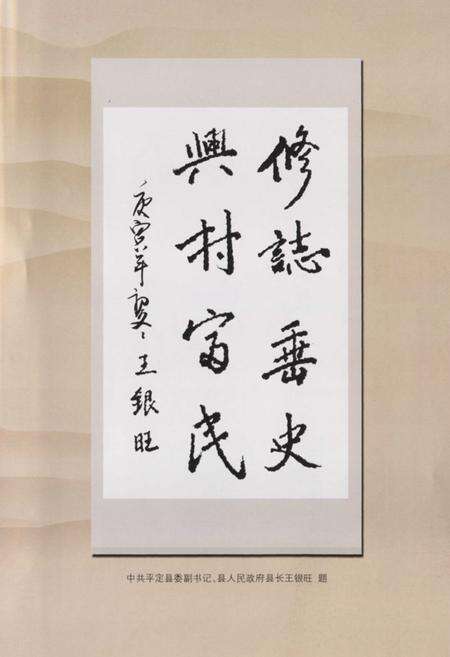 修誌垂史
興村富民
庚寅年夏 王银旺
中共平定县委副书记、县人民政府县长王银旺 题